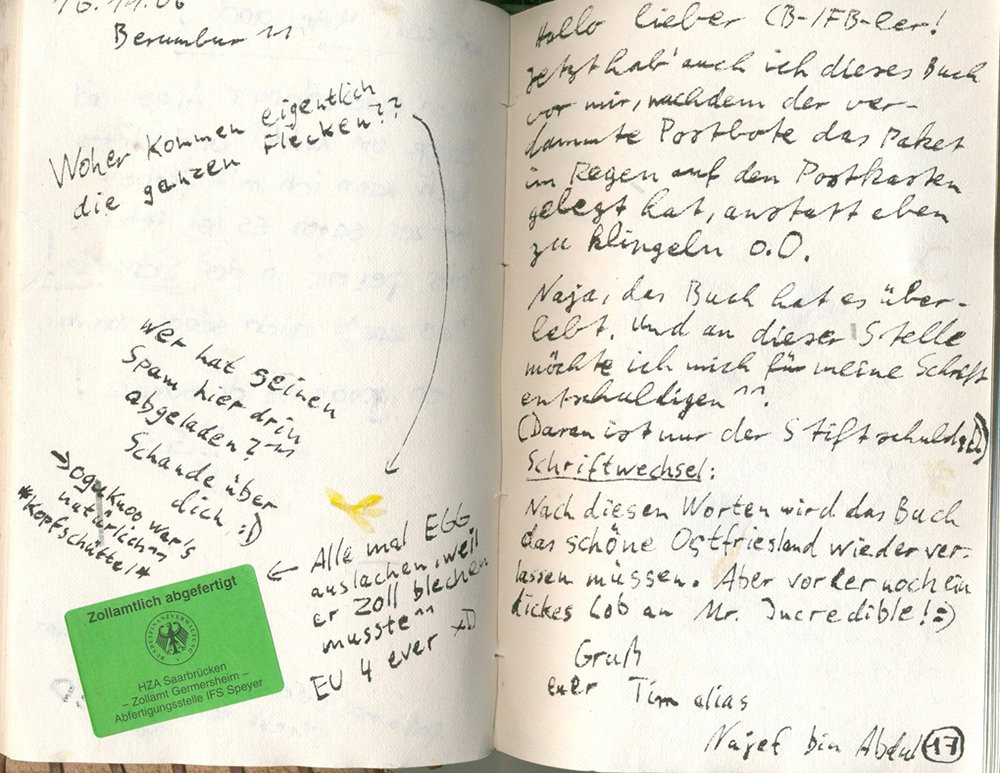 16.11.06
Berumbur ^^
Woher kommen eigentlich
die ganzen Flecken??
Wer hat seinen
Spam hier drin
abgeladen? ^^
Schande über
dich :D
→ ogukuoo war's
natürlich ^^
*Kopfschüttel*
← Alle mal EGG
auslachen, weil
er Zoll blechen
musste ^^
EU 4 ever xD
Zollamtlich abgefertigt
BUNDESFINANZVERWALTUNG
HZA Saarbrücken
– Zollamt Germersheim –
Abfertigungsstelle IFS Speyer
Hallo lieber CB-/FB-ler!
Jetzt hab' auch ich dieses Buch
vor mir, nachdem der ver-
dammte Postbote das Paket
im Regen auf den Postkasten
gelegt hat, anstatt eben
zu klingeln o.O.
Naja, das Buch hat es über-
lebt. Und an dieser Stelle
möchte ich mich für meine Schrift
entschuldigen ^^.
(Daran ist nur der Stift schuld ;D)
Schriftwechsel:
Nach diesen Worten wird das Buch
das schöne Ostfriesland wieder ver-
lassen müssen. Aber vorher noch ein
dickes Lob an Mr. Incredible! =)
Gruß
euer Tim alias
Najef bin Abdul
17